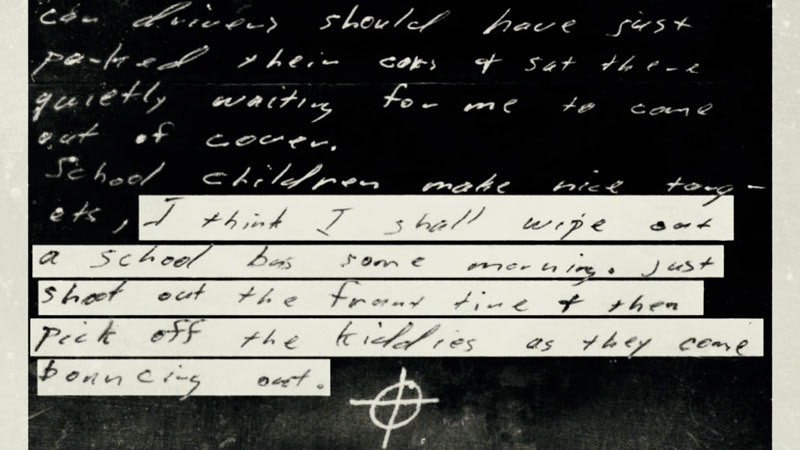 car drivers should have just
parked their cars & sat there
quietly waiting for me to come
out of cover.
School children make nice targ-
ets, I think I shall wipe out
a school bus some morning. Just
shoot out the front tire & then
pick off the kiddies as they come
bouncing out.